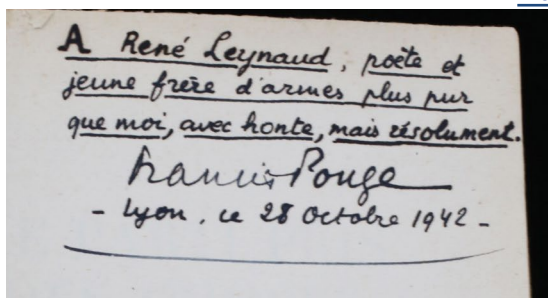 A René Leynaud, poète et
jeune frère d'armes plus pur
que moi, avec honte, mais résolument.
Francis Ponge
- Lyon, ce 28 Octobre 1942 -